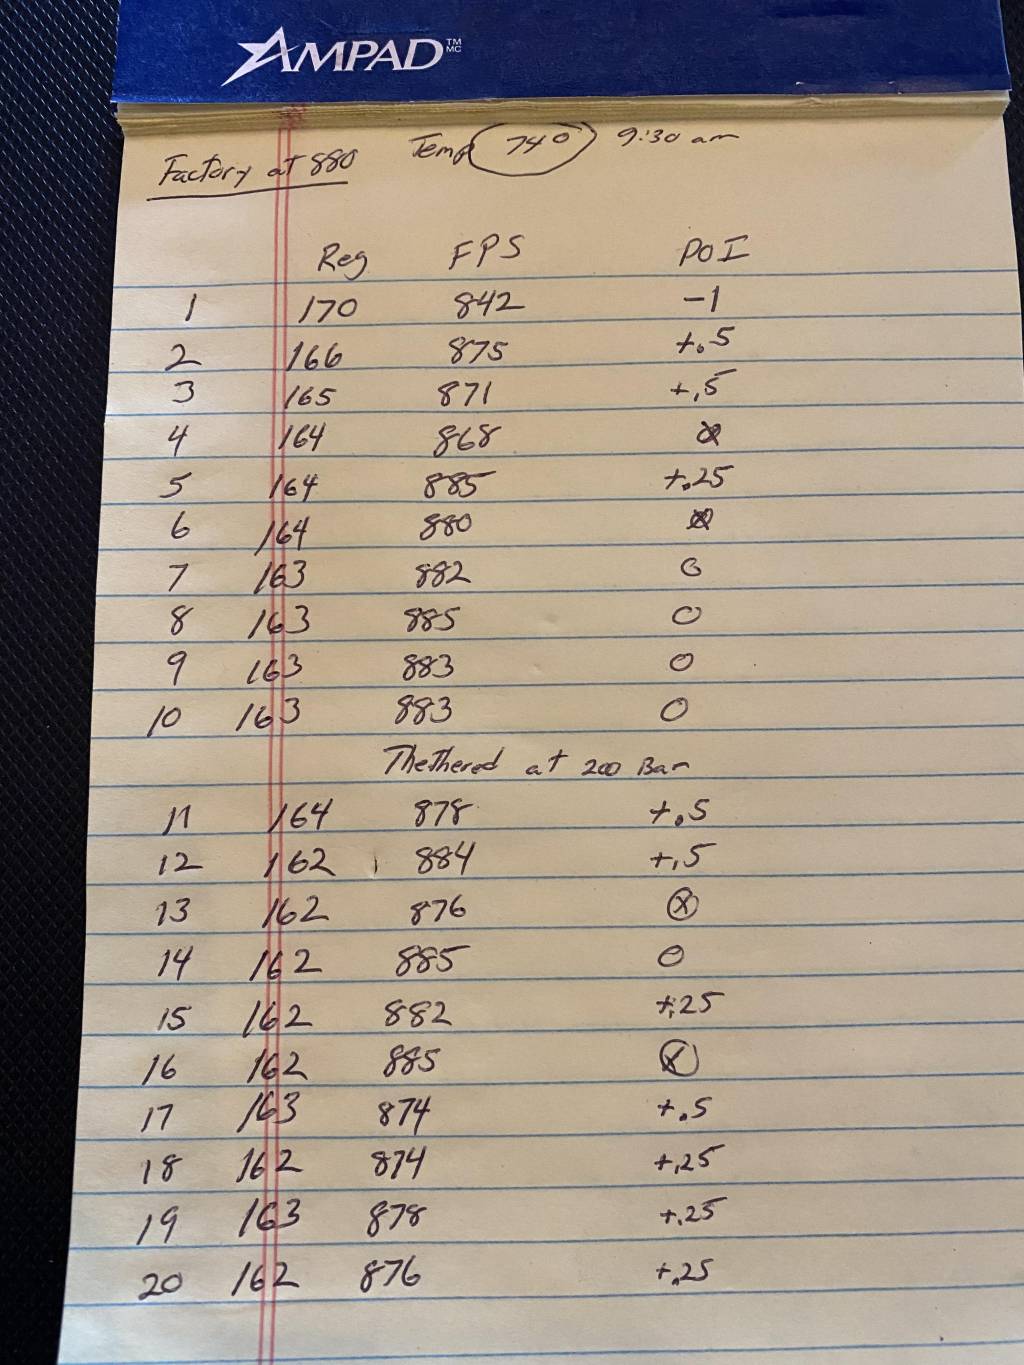 AMPAD TM MC
Factory at 880 Temp 74° 9:30 am
Reg FPS POI
1 170 842 -1
2 166 875 +.5
3 165 871 +.5
4 164 868
5 164 885 +.25
6 164 880
7 163 882 0
8 163 885 0
9 163 883 0
10 163 883 0
Thethered at 200 Bar
11 164 878 +.5
12 162 884 +.5
13 162 876 ⓧ
14 162 885 0
15 162 882 +.25
16 162 885 ⓧ
17 163 874 +.5
18 162 874 +.25
19 163 878 +.25
20 162 876 +.25